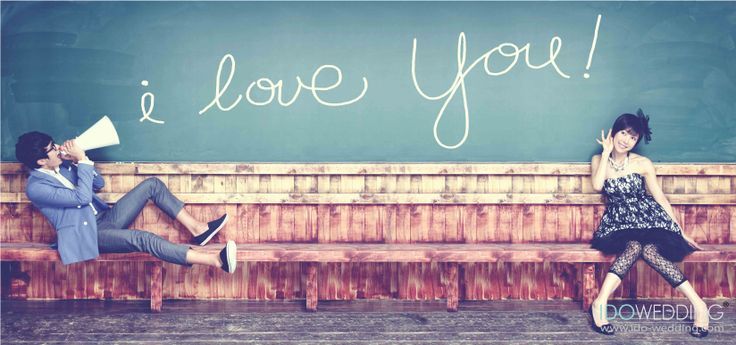 i love you!
IDOWEDDING
www.ido-wedding.com